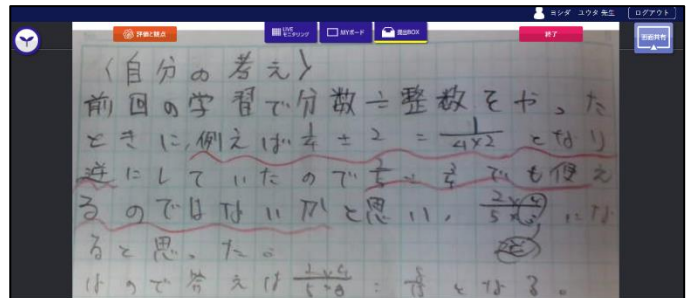 ヨシダ ユウタ 先生 [ログアウト]
評価と観点 LIVEモニタリング MYボード 提出BOX 終了 画面共有
〈自分の考え〉
前回の学習で分数÷整数をやった
ときに、例えば 1/4 ÷ 2 = 1/4×2 となり
逆にしていたので 2/5 ÷ 3/4 でも使え
るのではないかと思い、 2×4/5×3 にな
ると思った。
なので答えは 2×4/5×3 = 8/15 となる。